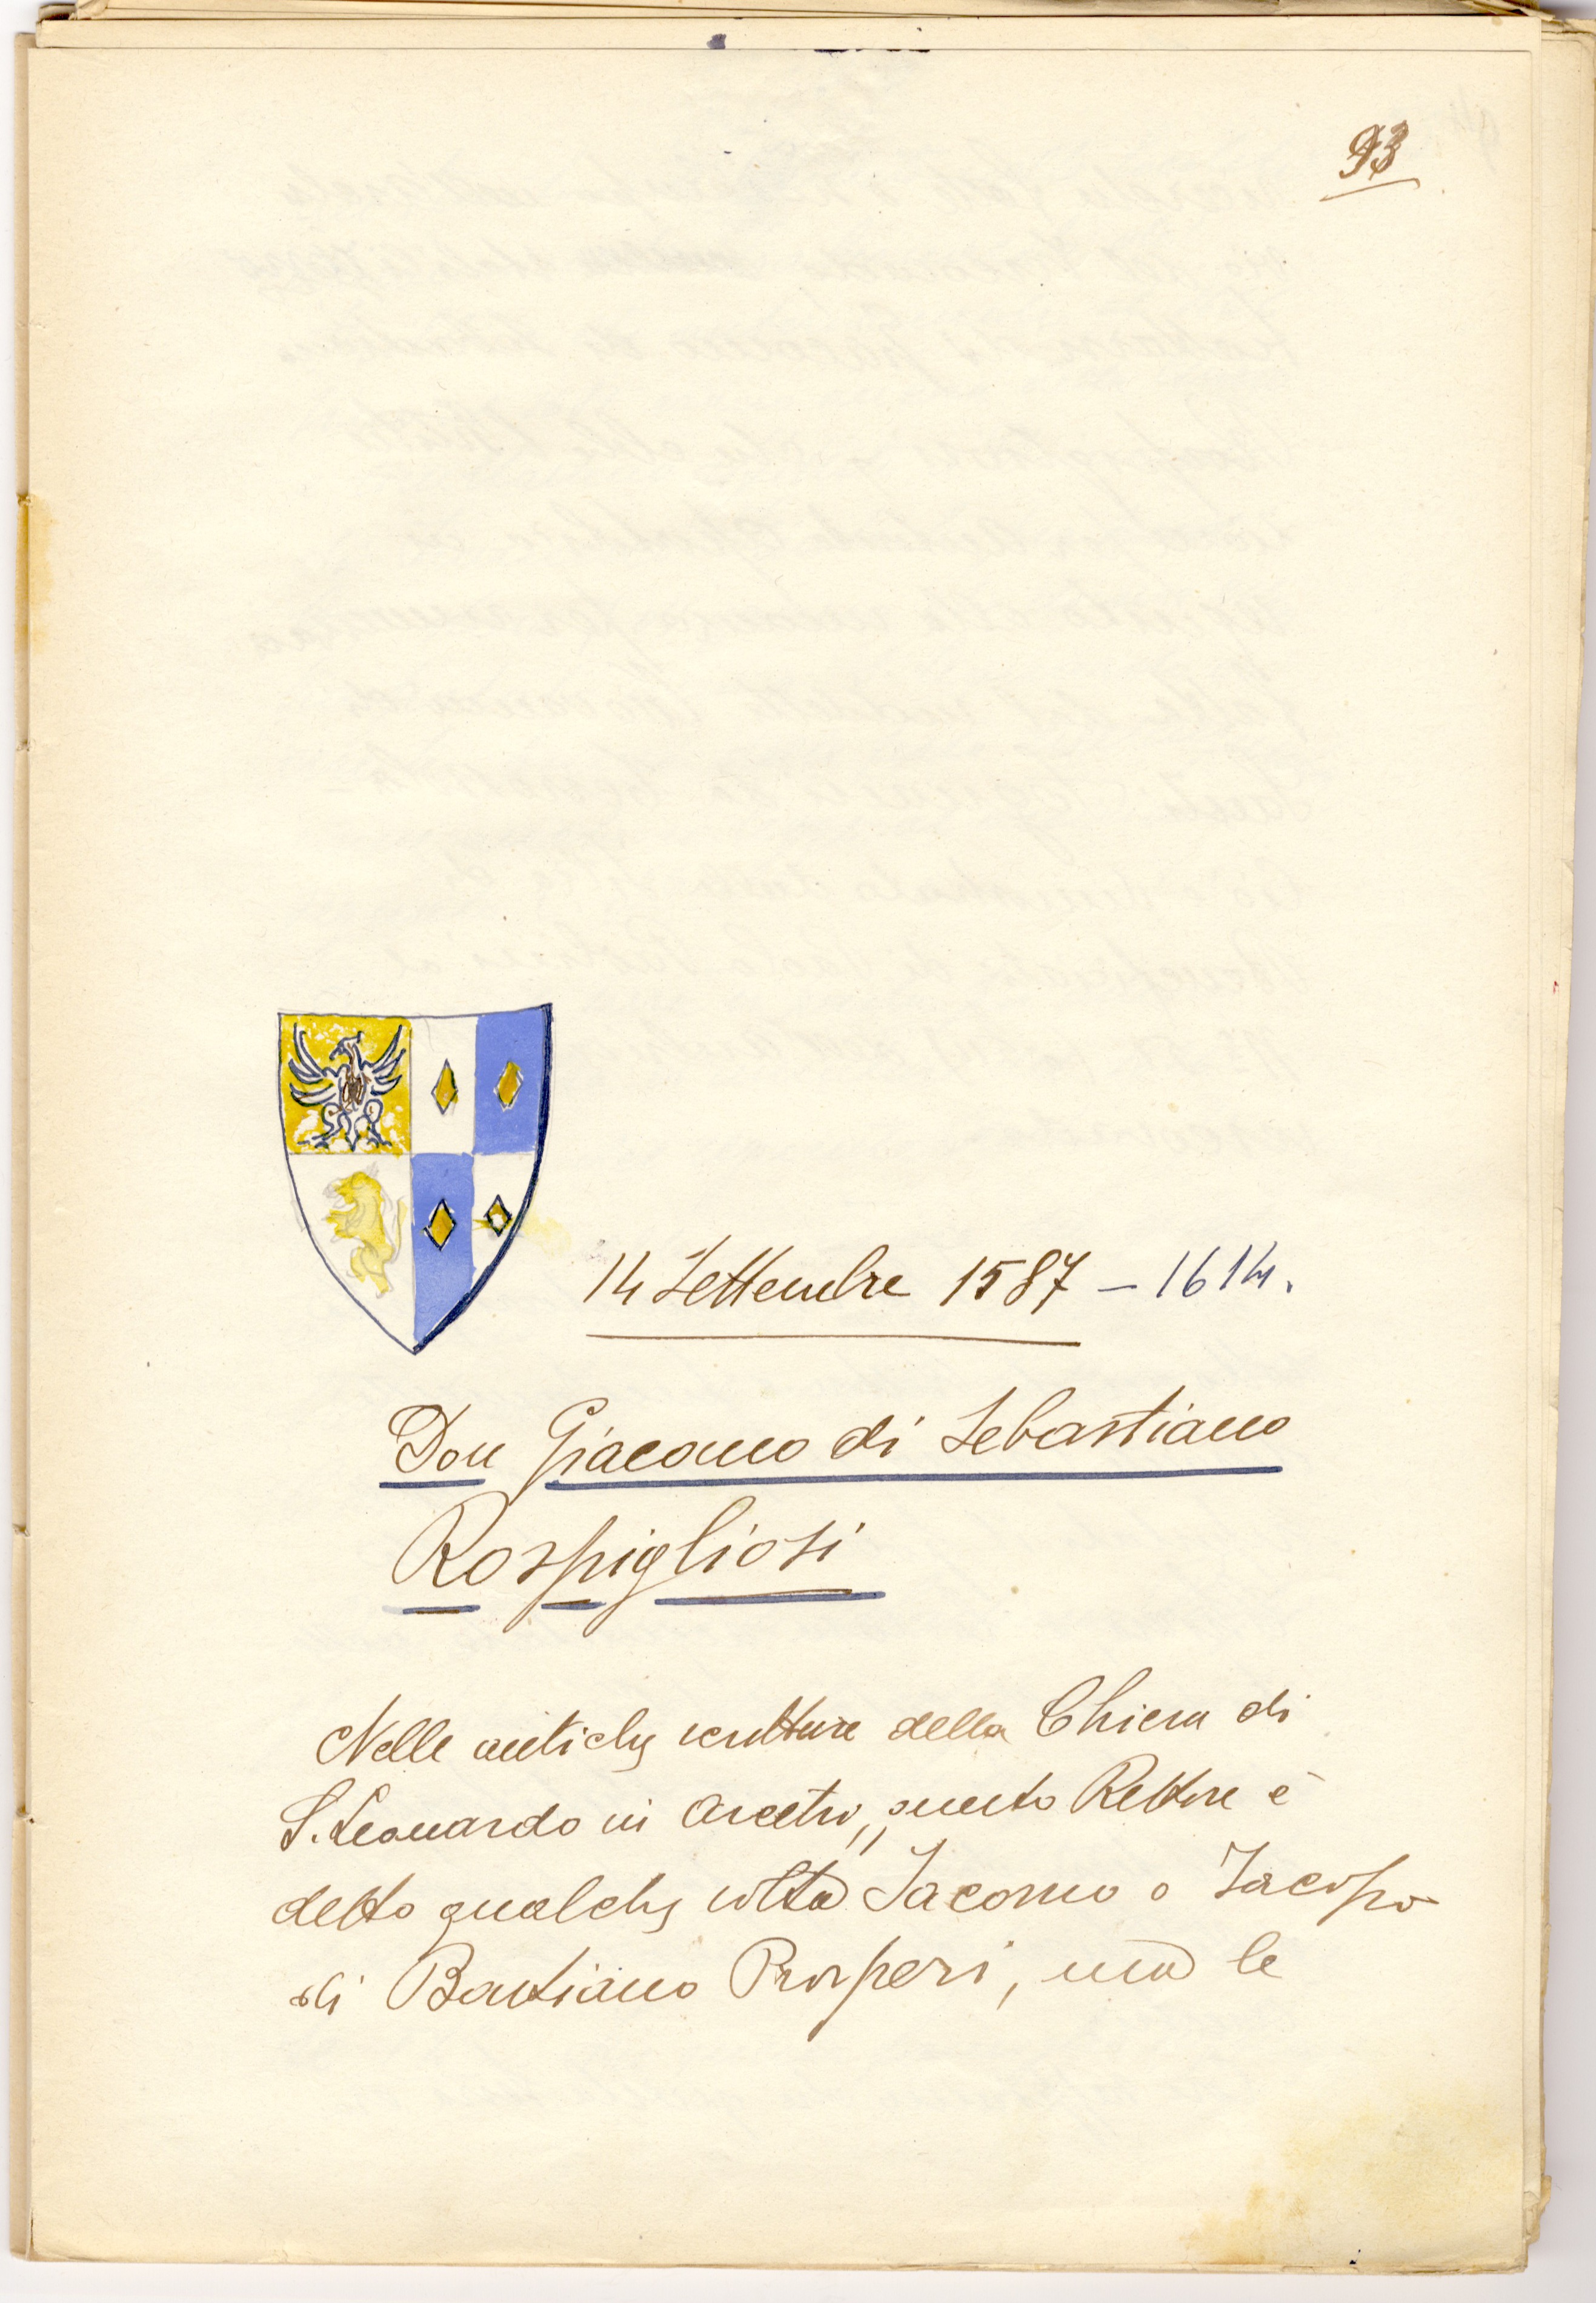 93
14 Settembre 1587 – 1614.
Don Giacomo di Sebastiano
Rospigliosi
Nelle antiche scritture della Chiesa di
S. Leonardo in Arcetri, questo Rettore è
detto qualche volta Jacomo o Jacopo
di Bastiano Prosperi, ma le